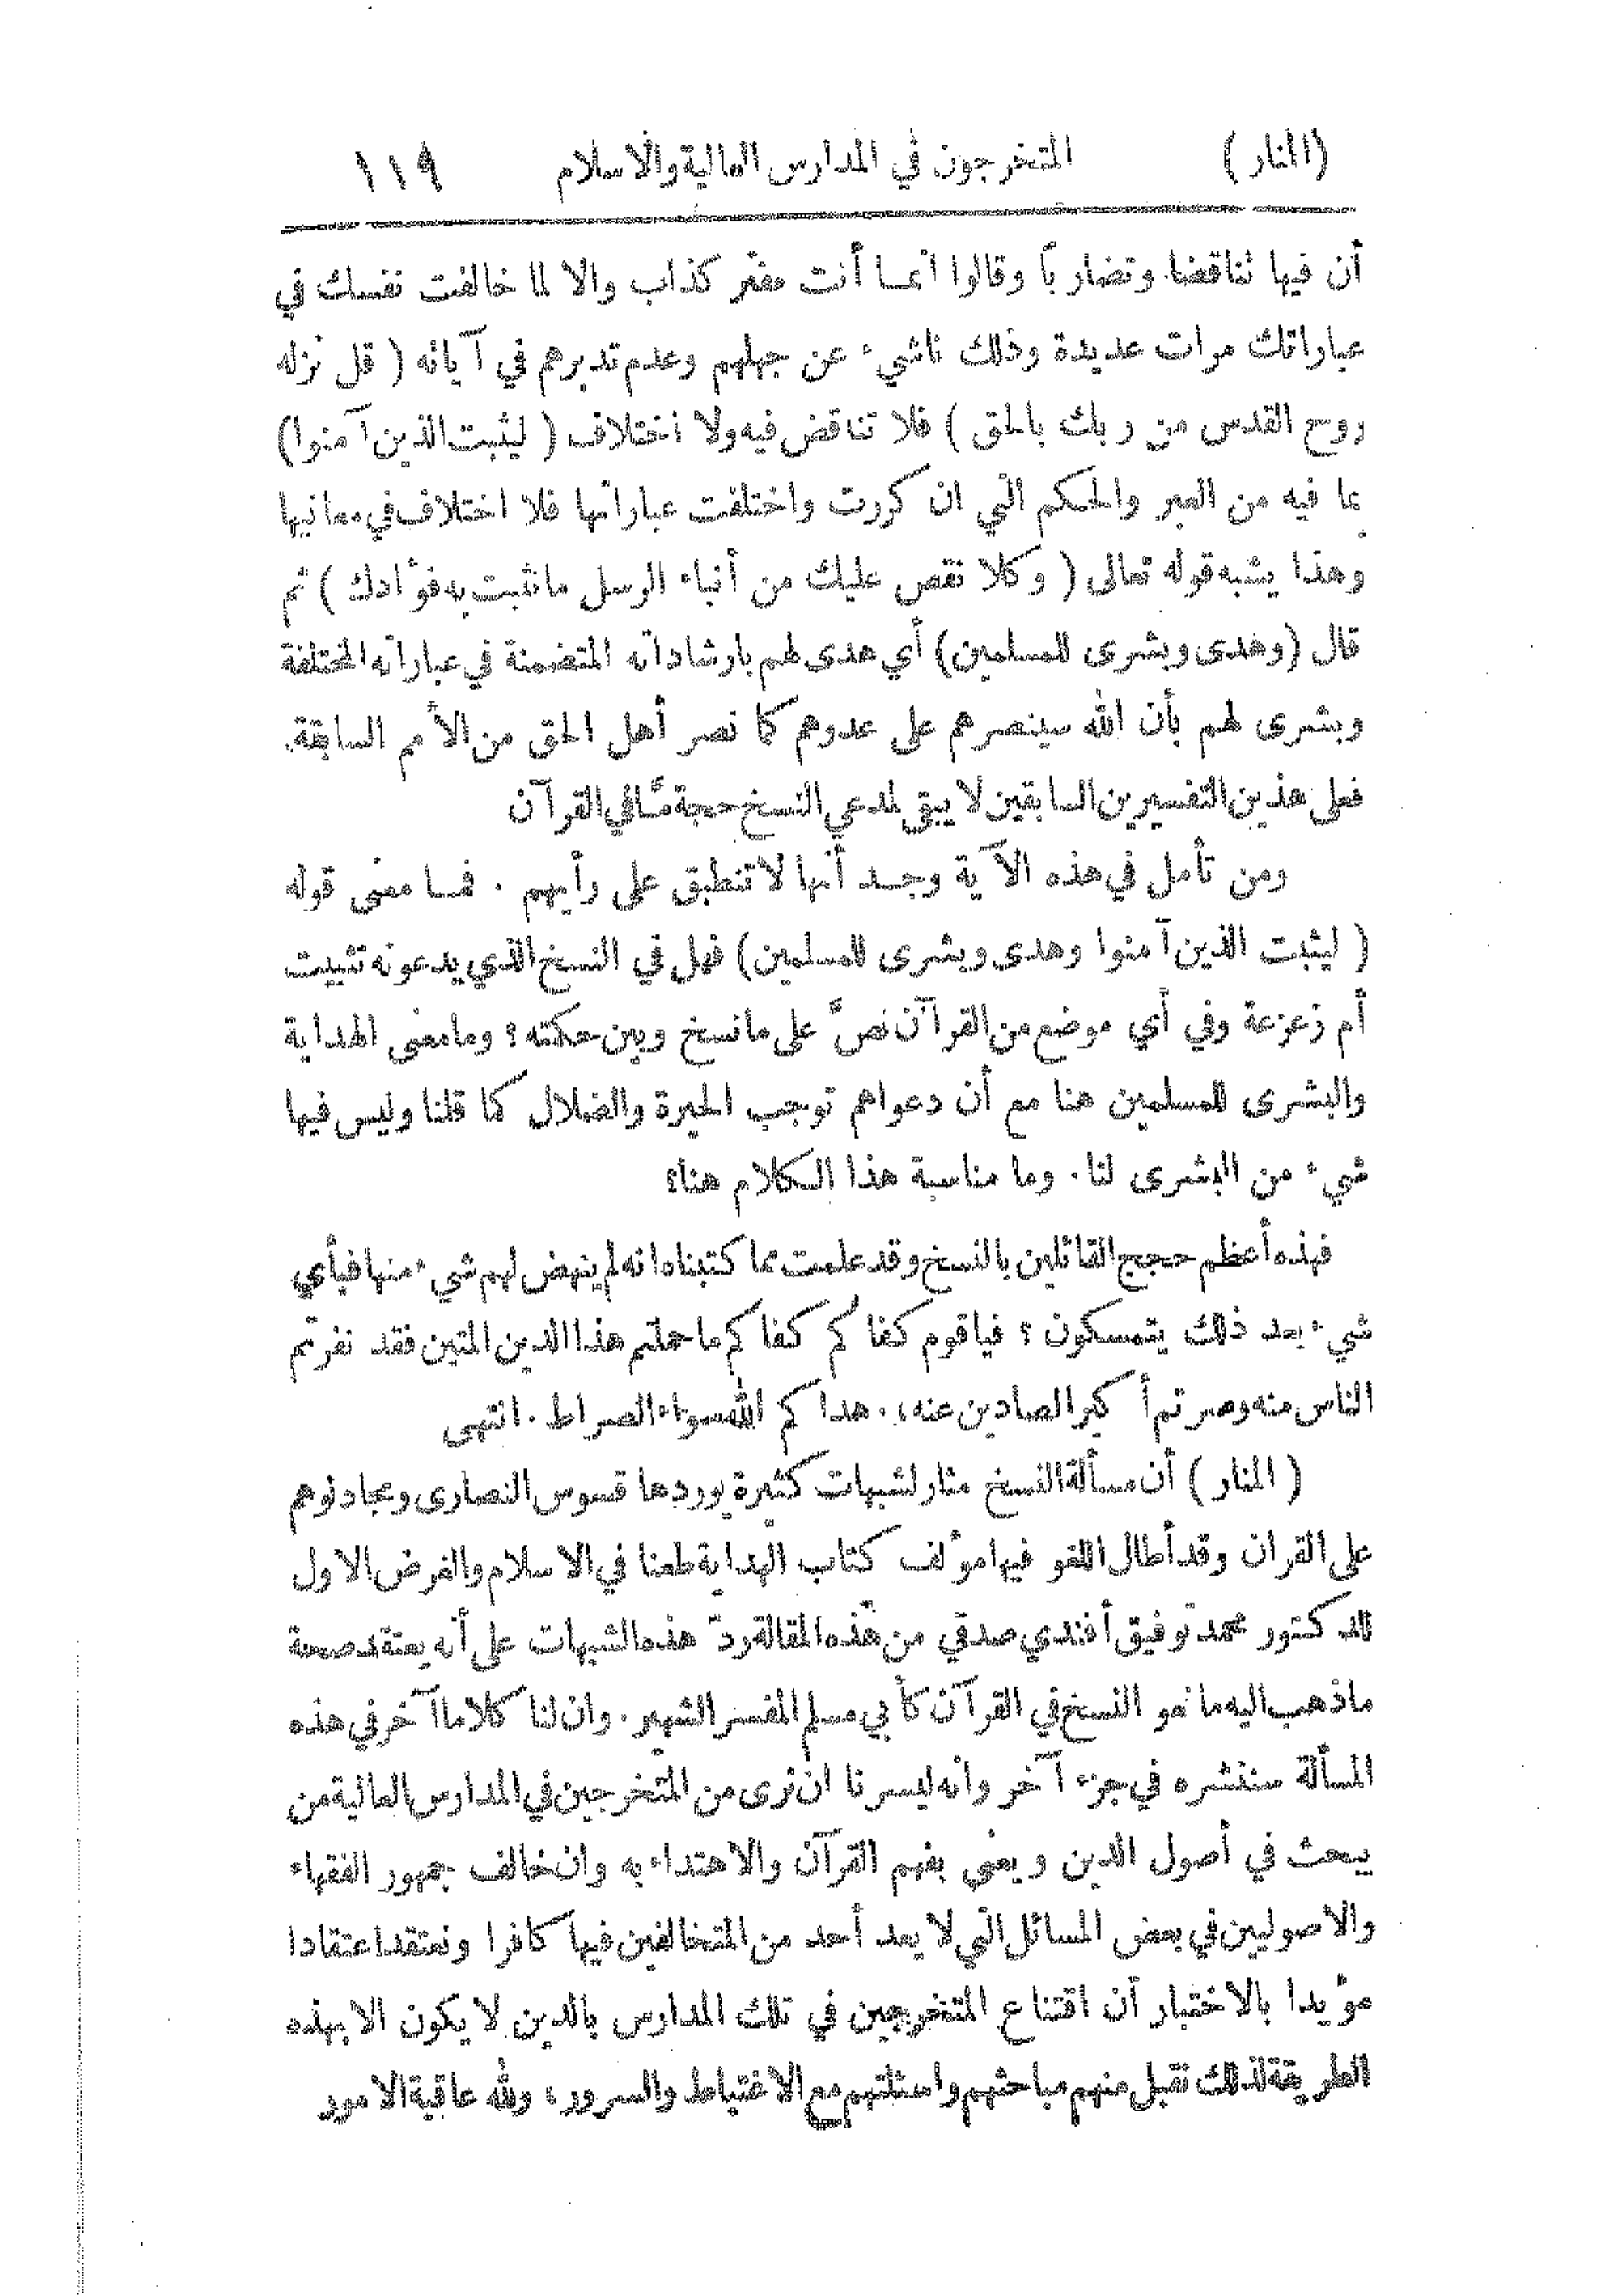 (المنار) المتخرجون في المدارس العالية والاسلام ١١٩
أن فيها تناقضا وتضارباً وقالوا انما أنت مفتر كذاب والا لما خالفت نفسك في
عباراتك مرات عديدة وذلك ناشيء عن جهلهم وعدم تدبرهم في آياته ( قل نزله
روح القدس من ربك بالحق ) فلا تناقض فيه ولا اختلاف ( ليثبت الذين آمنوا)
بما فيه من العبر والحكم التي ان كررت واختلفت عباراتها فلا اختلاف في معانيها
وهذا يشبه قوله تعالى ( وكلا نقص عليك من أنباء الرسل ما نثبت به فؤادك ) ثم
قال (وهدى وبشرى للمسلمين) أي هدى لهم بارشاداته المتضمنة في عباراته المختلفة
وبشرى لهم بأن الله سينصرهم على عدوهم كما نصر أهل الحق من الأمم السابقة.
فعلى هذين التفسيرين السابقين لا يبقى لمدعي النسخ حجة مّا في القرآن
ومن تأمل في هذه الآية وجد أنها لا تنطبق على رأيهم . فما معنى قوله
( ليثبت الذين آمنوا وهدى وبشرى للمسلمين) فهل في النسخ الذي يدعونه تثبيت
أم زعزعة وفي أي موضع من القرآن نصّ على ما نسخ وبين حكمته ؟ وما معنى الهداية
والبشرى للمسلمين هنا مع أن دعواهم توجب الحيرة والضلال كما قلنا وليس فيها
شيء من البشرى لنا . وما مناسبة هذا الكلام هنا؟
فهذه أعظم حجج القائلين بالنسخ وقد علمت مما كتبناه انه لم ينهض لهم شيء منها فبأي
شيء بعد ذلك يتمسكون ؟ فيا قوم كفاكم كفاكم ما حملتم هذا الدين المتين فقد نفرتم
الناس منه وصرتم أكبر الصادين عنه، . هداكم الله سواء الصراط . انتهى
( المنار ) أن مسألة النسخ مثار لشبهات كثيرة يوردها قسوس النصارى ومجادلوهم
على القران وقد أطال اللغو فيها مؤلف كتاب الهداية طعنا في الاسلام والغرض الاول
للدكتور محمد توفيق أفندي صدقي من هذه المقالة ردّ هذه الشبهات على أنه يعتقد صحة
ماذهب اليه مانعو النسخ في القرآن كأبي مسلم المفسر الشهير . وان لنا كلاما آخر في هذه
المسألة سننشره في جزء آخر وانه ليسرنا ان نرى من المتخرجين في المدارس العالية من
يبحث في أصول الدين ويعنى بفهم القرآن والاهتداء به وان خالف جمهور الفقهاء
والاصوليين في بعض المسائل التي لا يعد أحد من المتخالفين فيها كافرا ونعتقد اعتقادا
مؤيدا بالاختبار أن اقتناع المتخرجين في تلك المدارس بالدين لا يكون الا بهذه
الطريقة لذلك نقبل منهم مباحثهم واسئلتهم مع الاغتباط والسرور، ولله عاقبة الامور